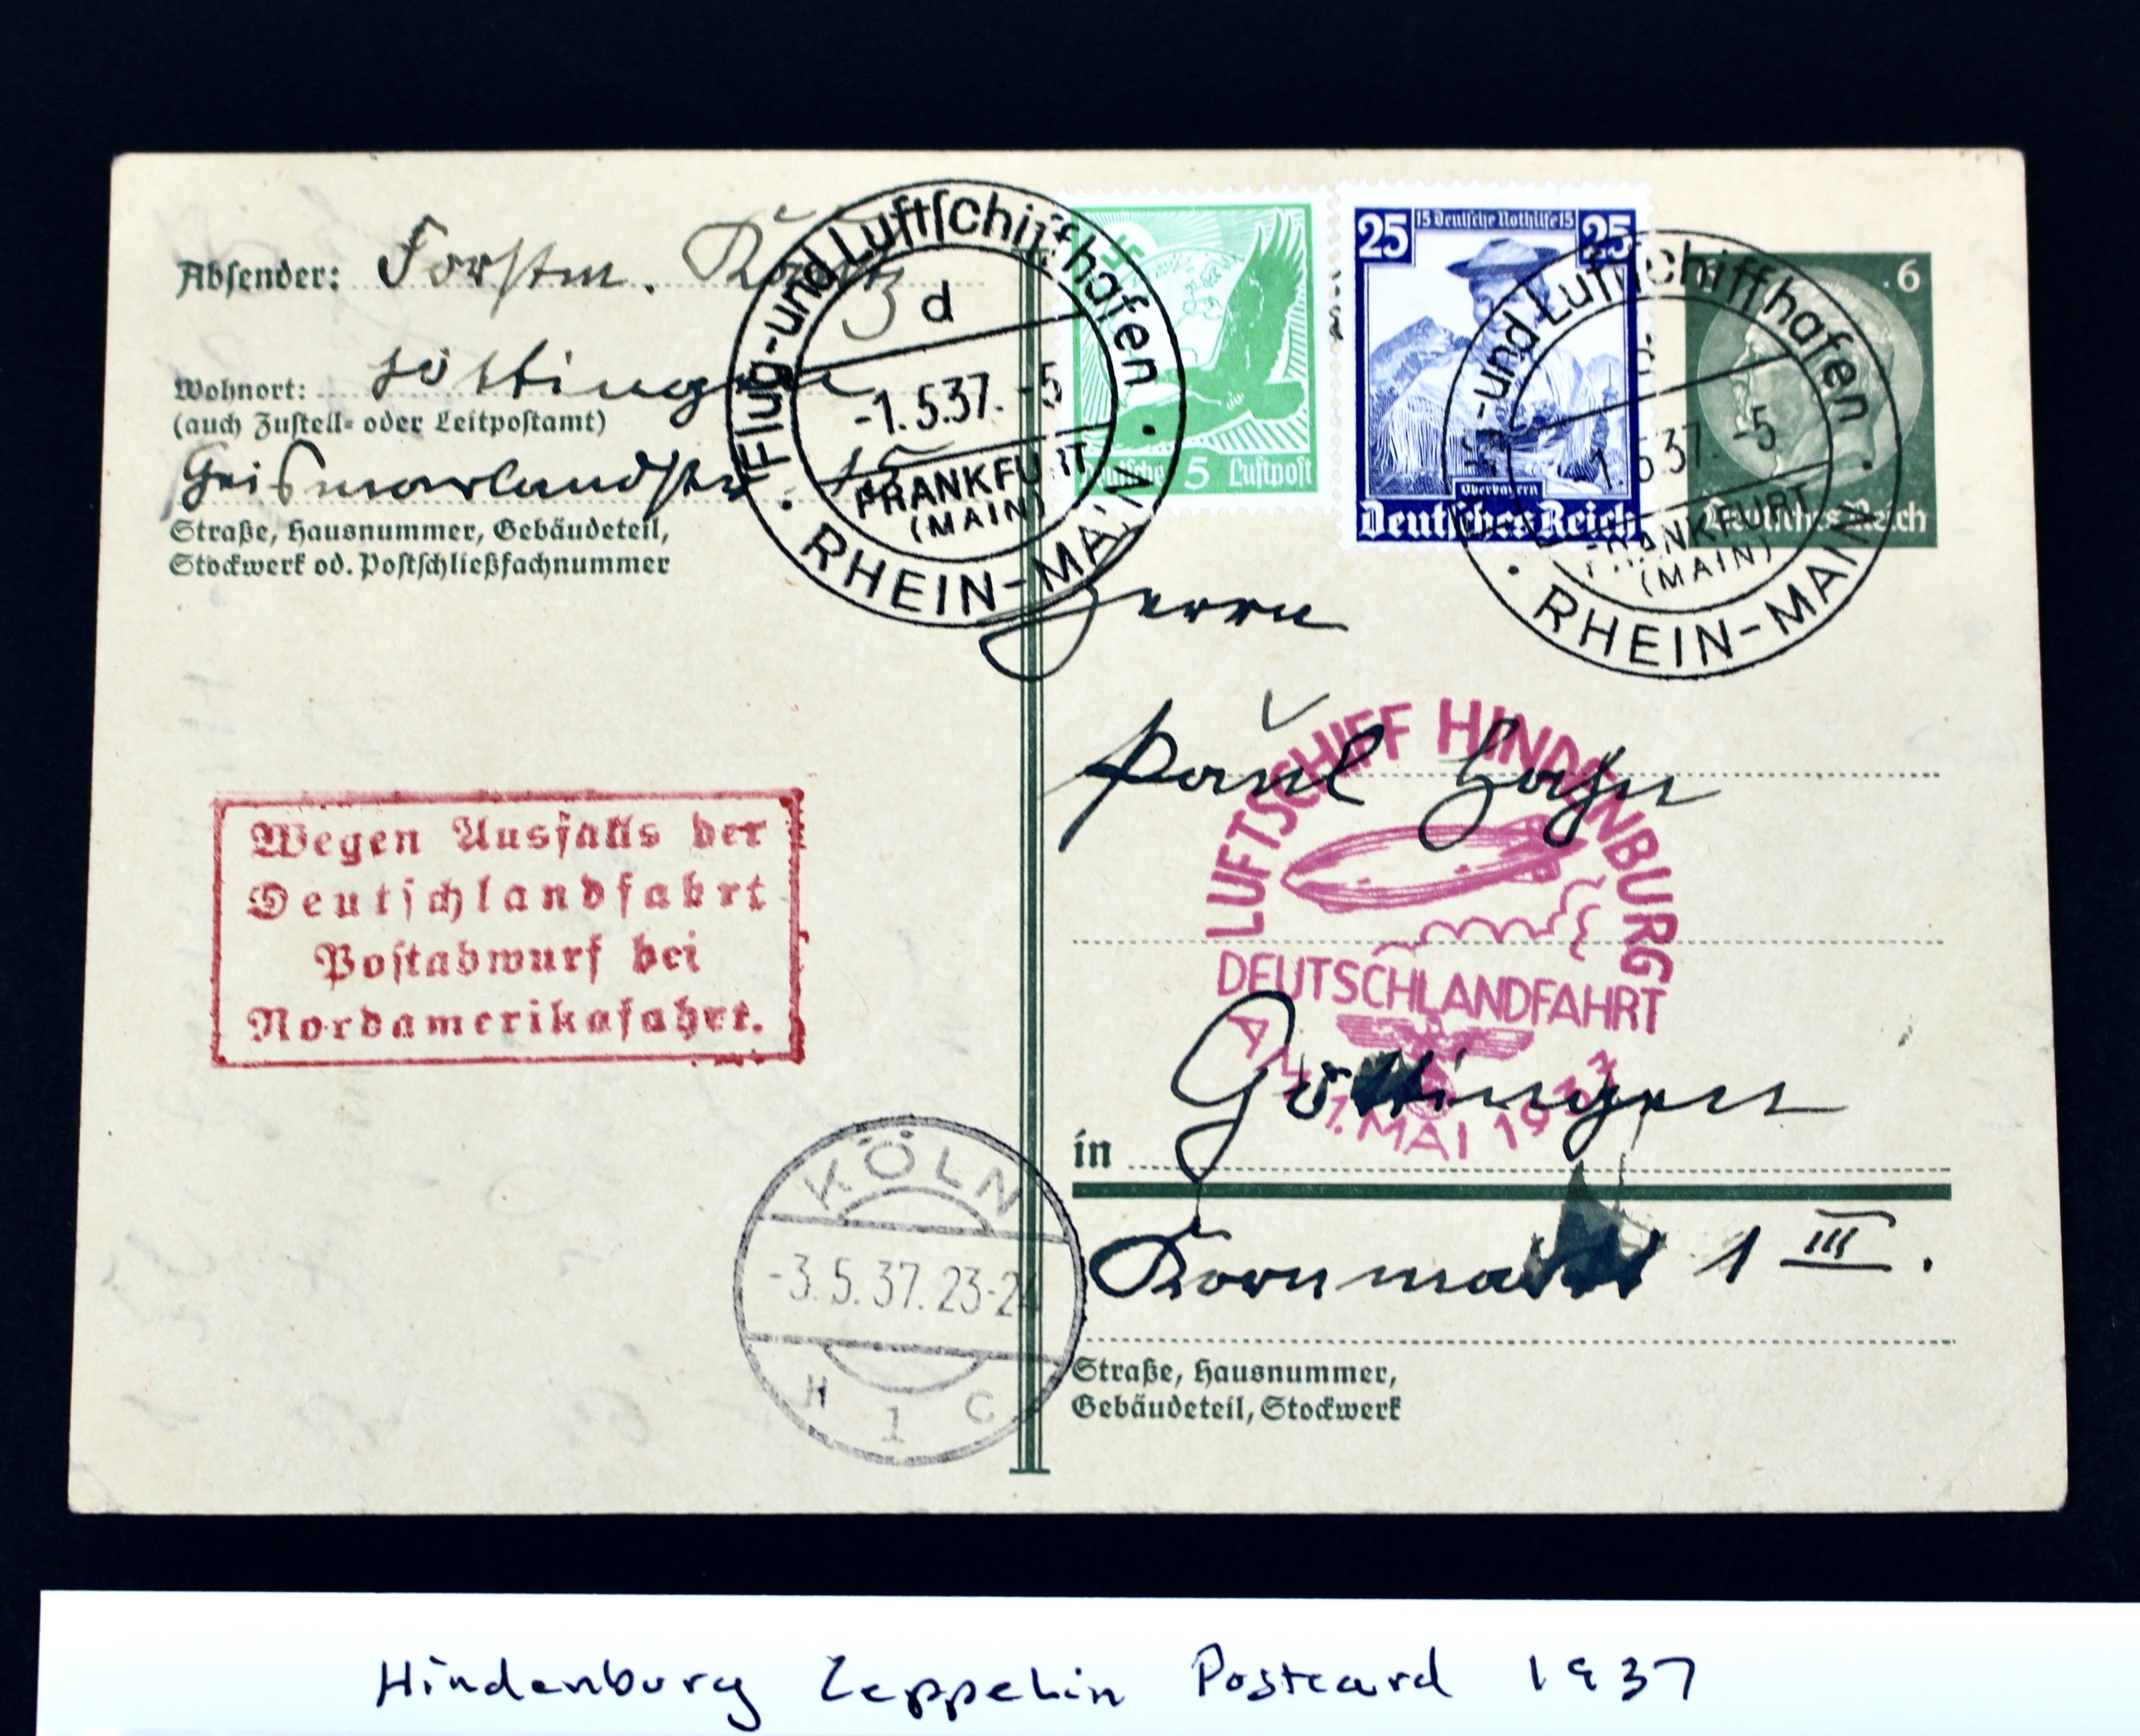 Absender: Forstm.
Wohnort: Göttingen
(auch Zustell- oder Leitpostamt)
Geismarlandstr
Straße, Hausnummer, Gebäudeteil,
Stockwerk od. Postschließfachnummer
Flug-und Luftschiffhafen
d
-1.5.37.-5
FRANKFURT
(MAIN)
RHEIN-MAIN
Deutsche 5 Luftpost
25 15 Deutsche Nothilfe 15 25
Oberbayern
Deutsches Reich
6
Deutsches Reich
Flug-und Luftschiffhafen
-1.5.37.-5
FRANKFURT
(MAIN)
RHEIN-MAIN
Herrn
Paul Hahn
LUFTSCHIFF HINDENBURG
DEUTSCHLANDFAHRT
AM 1. MAI 1937
in Göttingen
Kornmarkt 1 III.
Straße, Hausnummer,
Gebäudeteil, Stockwerk
Wegen Ausfalls der
Deutschlandfahrt
Postabwurf bei
Nordamerikafahrt.
KÖLN
-3.5.37.23-24
H 1 C
Hindenburg Zeppelin Postcard 1937